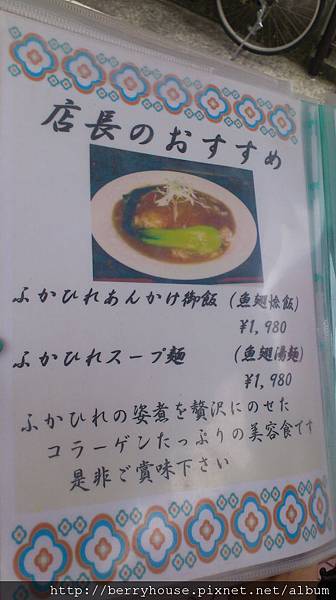 店長のおすすめ
ふかひれあんかけ御飯 (魚翅燴飯)
¥1,980
ふかひれスープ麺 (魚翅湯麺)
¥1,980
ふかひれの姿煮を贅沢にのせた
コラーゲンたっぷりの美容食です
是非ご賞味下さい
http://berryhouse.pixnet.net/album